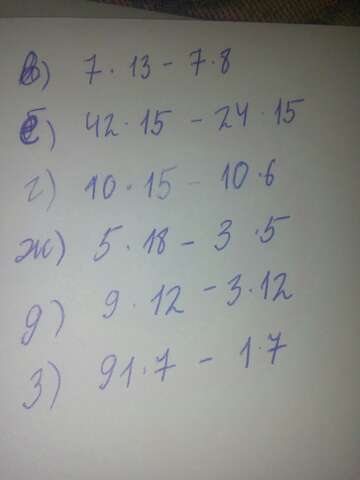 в) 7 · 13 - 7 · 8
е) 42 · 15 - 24 · 15
г) 10 · 15 - 10 · 6
ж) 5 · 18 - 3 · 5
д) 9 · 12 - 3 · 12
з) 91 · 7 - 1 · 7